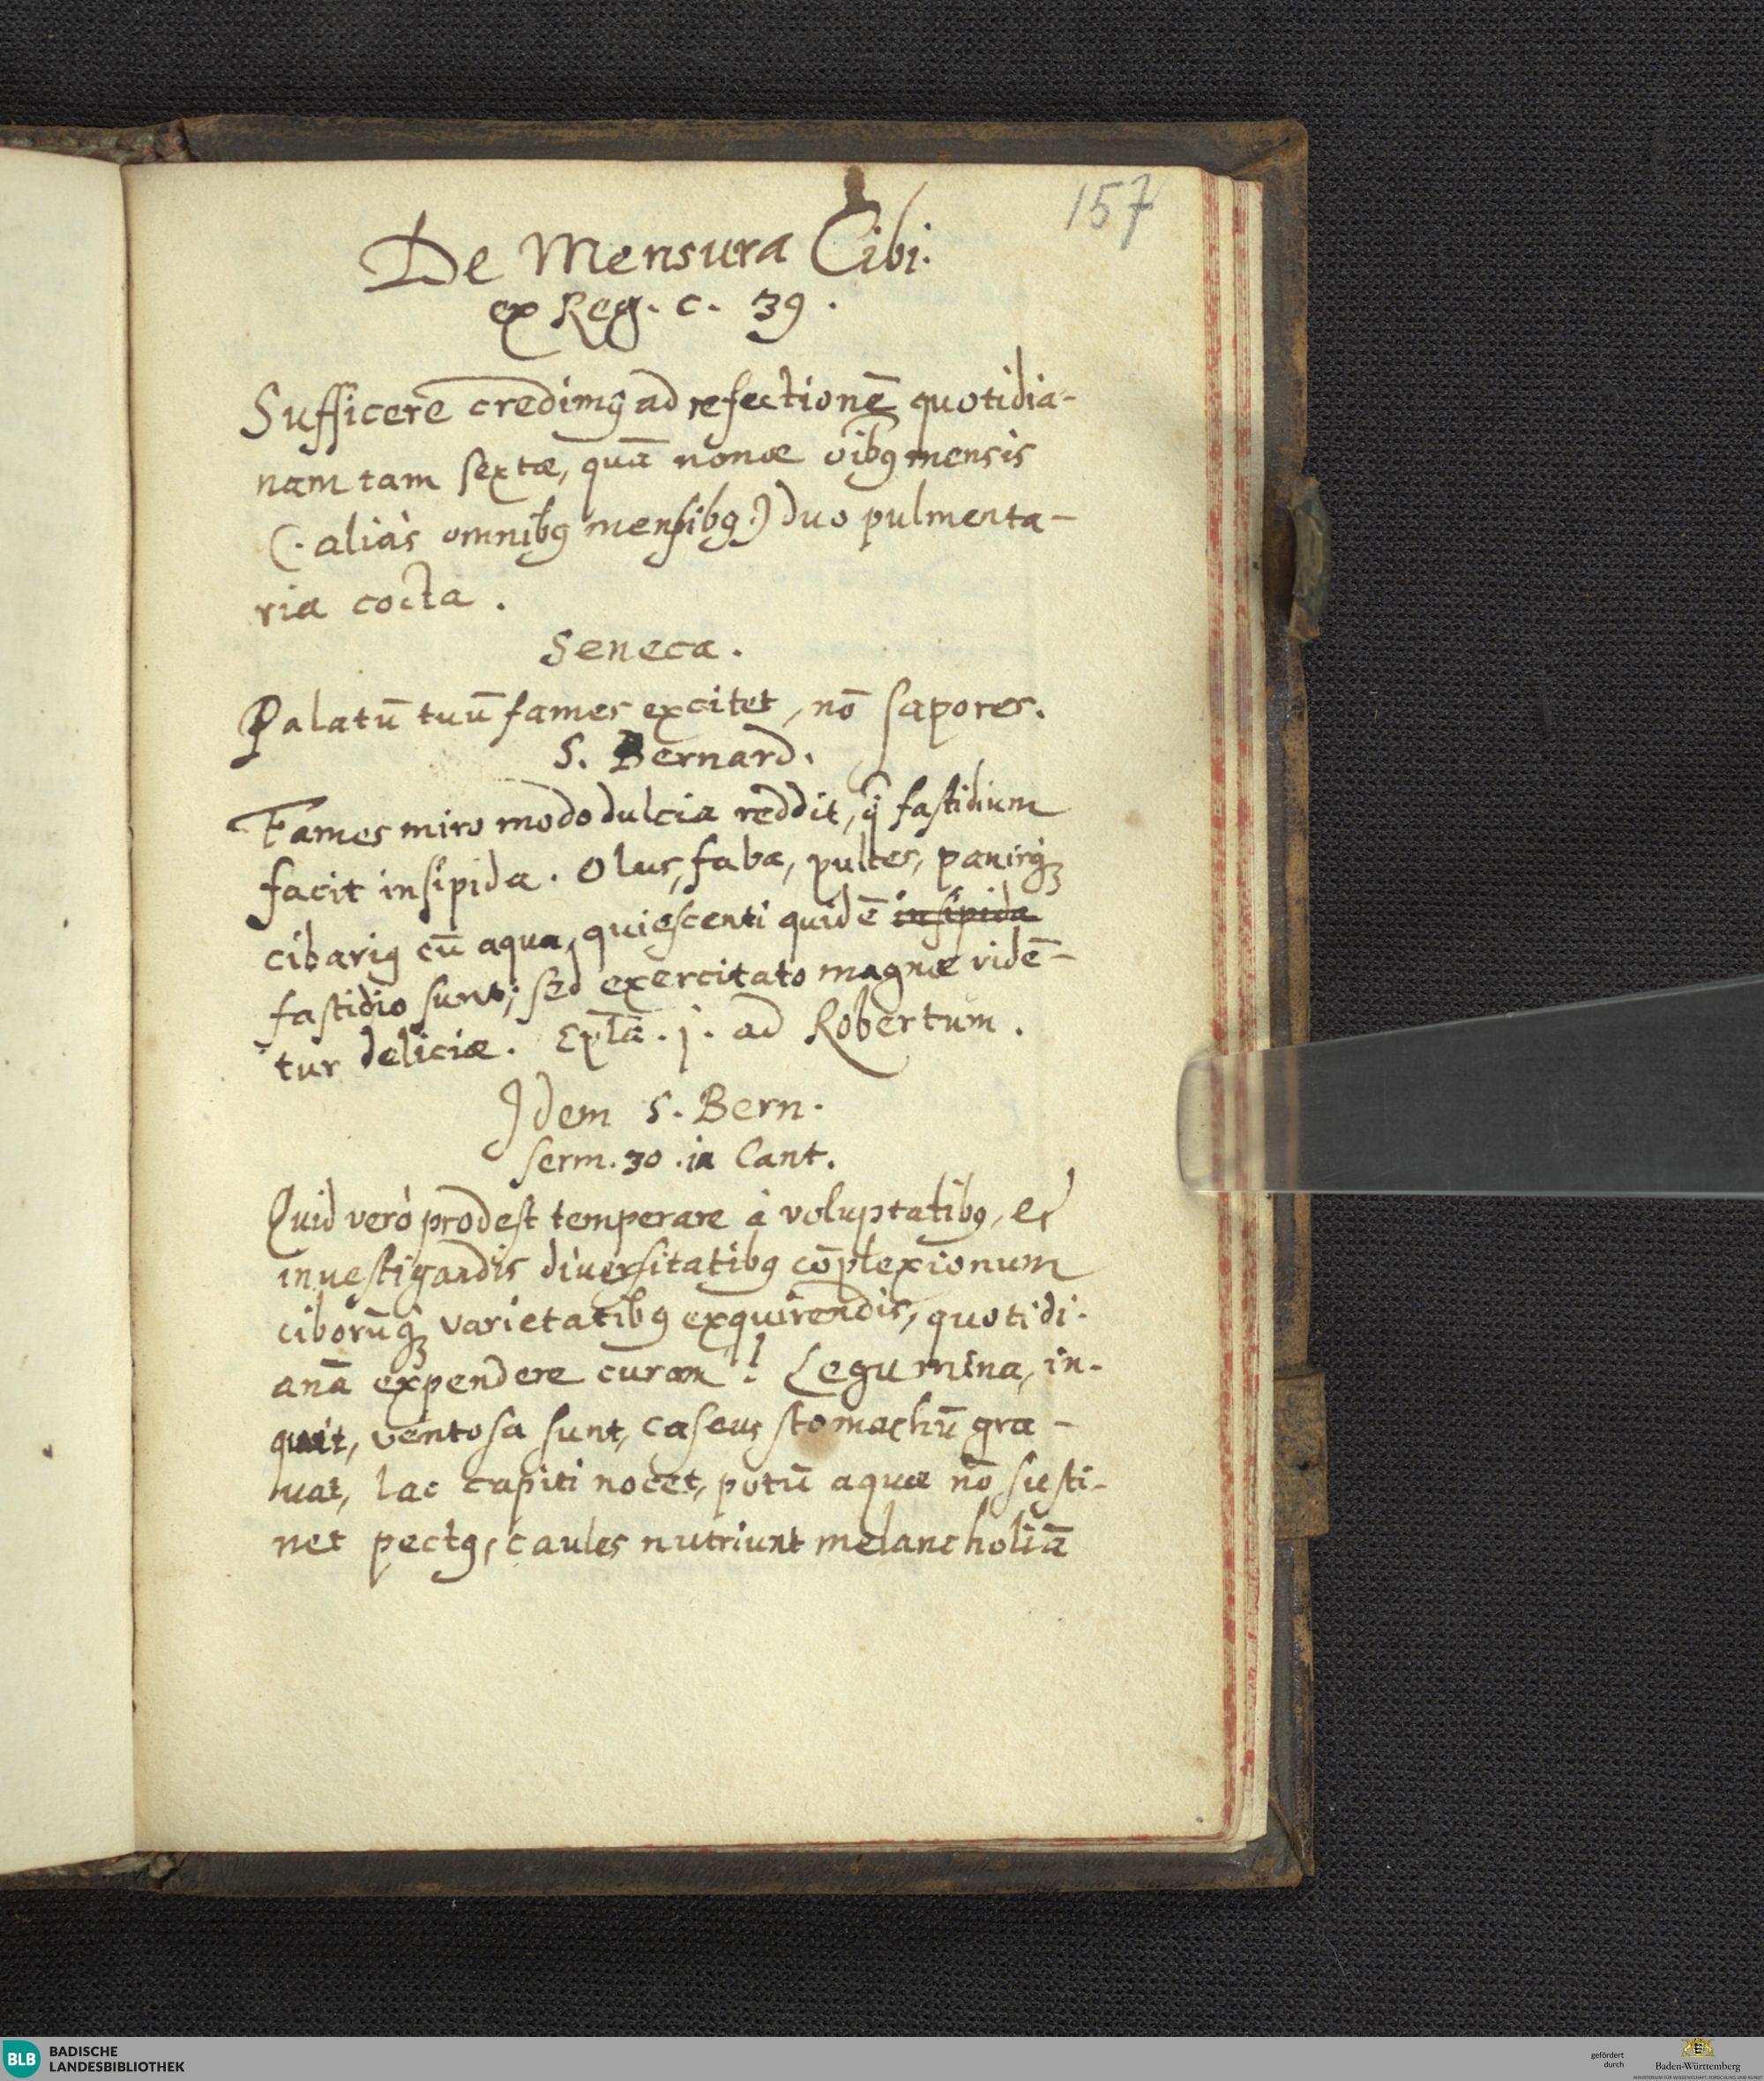 157
De Mensura Cibi.
ex Reg. c. 39.
Sufficere credimꝰ ad refectionē quotidia-
nam tam sextæ, quā nonæ oībꝰ mensis
(. aliàs omnibꝰ mensibꝰ.) duo pulmenta-
ria cocta.
Seneca.
Palatū tuū fames excitet, nō sapores.
S. Bernard.
Fames miro modo dulcia reddit, q̄ fastidium
facit insipida. Olus, faba, pultes, panisq́ꝫ
cibariꝰ cū aqua, quiescenti quidē insipida
fastidio sunt; sed exercitato magnæ vidē-
tur deliciæ. Epl̄a. j. ad Robertum.
Idem S. Bern.
serm. 30. in Cant.
Quid verò prodest temperare à voluptatibꝰ, et
inuestigandis diuersitatibꝰ cōplexionum
ciborūq́ꝫ varietatibꝰ exquirendis, quotidi-
anā expendere curam? Legumina, in-
quit, ventosa sunt, caseus stomachū gra-
uat, lac capiti nocet, potū aquæ nō susti-
net pectꝰ, caules nutriunt melancholiā
BLB
BADISCHE
LANDESBIBLIOTHEK
gefördert
durch
Baden-Württemberg
MINISTERIUM FÜR WISSENSCHAFT, FORSCHUNG UND KUNST